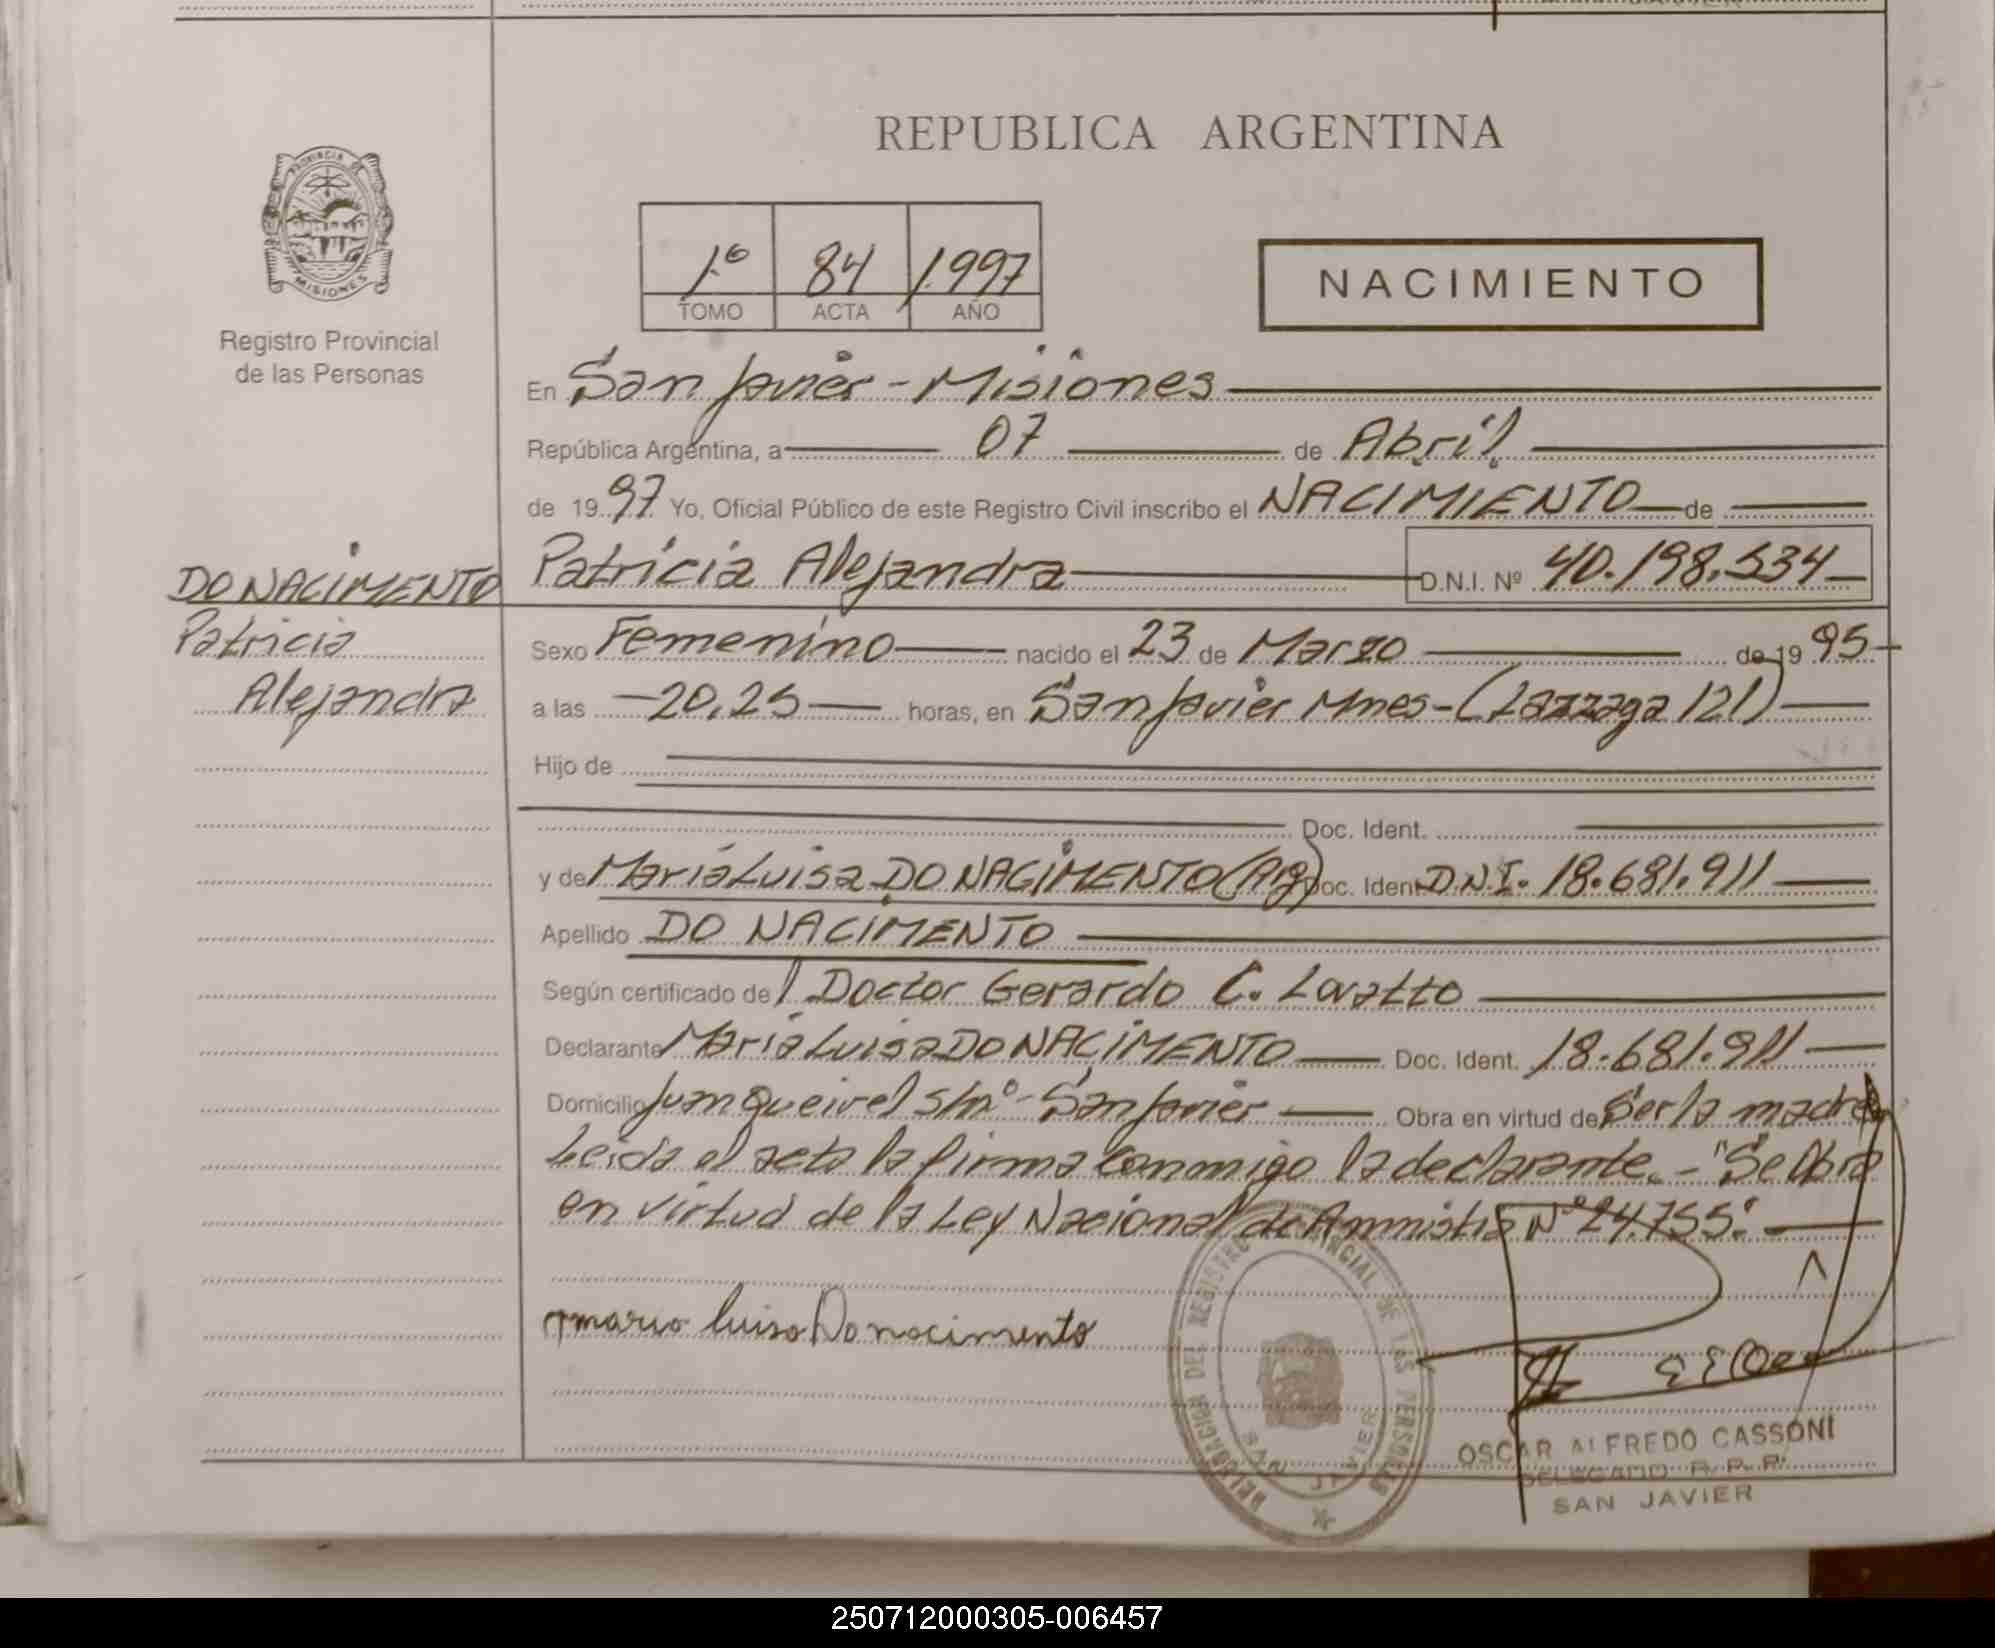 REPUBLICA ARGENTINA
PROVINCIA DE
MISIONES
Registro Provincial
de las Personas
1º 84 1.997
TOMO ACTA AÑO
NACIMIENTO
En San Javier - Misiones
República Argentina, a 07 de Abril.
de 1997. Yo, Oficial Público de este Registro Civil inscribo el NACIMIENTO de
DO NACIMENTO
Patricia
Alejandra
Patricia Alejandra D.N.I. Nº 40.198.534
Sexo Femenino nacido el 23 de Marzo de 1995
a las 20,25 horas, en San Javier Mnes - (Lazzaga 121)
Hijo de
Doc. Ident.
y de María Luisa DO NACIMENTO (Arg) Doc. Ident. D.N.I. 18.681.911
Apellido DO NACIMENTO
Según certificado del Doctor Gerardo C. Lovatto
Declarante María Luisa DO NACIMENTO Doc. Ident. 18.681.911
Domicilio Juan Queirel s/nº - San Javier Obra en virtud de Ser la madre
Leida el acta la firma conmigo la declarante. - "Se Obra
en virtud de la Ley Nacional de Amnistia Nº 24.755."
maria luisa Do nacimento
DELEGACION DEL REGISTRO PROVINCIAL DE LAS PERSONAS
SAN JAVIER
OSCAR ALFREDO CASSONI
DELEGADO R. P. P.
SAN JAVIER
250712000305-006457